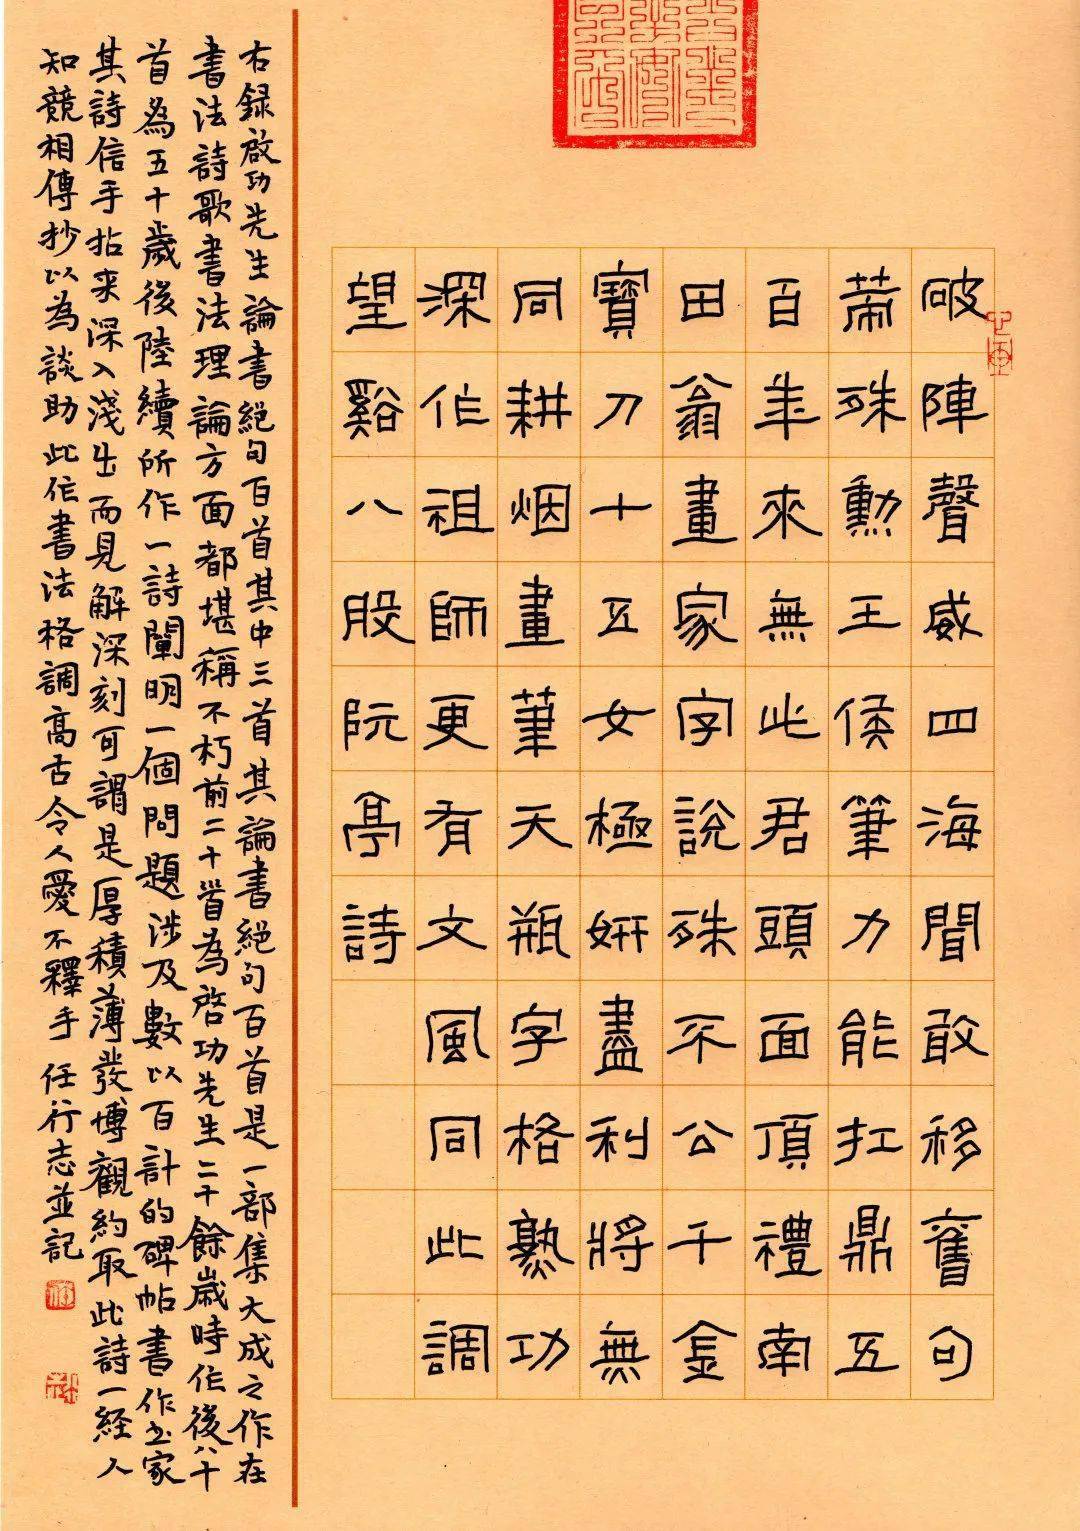 破陣聲威四海聞敢移舊句
策殊勳王侯筆力能扛鼎五
百年來無此君頭面頂禮南
田翁畫家字說殊不公千金
寶刀十五女極妍盡利將無
同耕烟畫筆天瓶字格熟功
深作祖師更有文風同此調
望谿八股阮亭詩
右録啟功先生論書絕句百首其中三首其論書絕句百首是一部集大成之作在
書法詩歌書法理論方面都堪稱不朽前二十首為啓功先生二十餘歲時作後八十
首為五十歲後陸續所作一詩闡明一個問題涉及數以百計的碑帖書作書家
其詩信手拈來深入淺出而見解深刻可謂是厚積薄發博觀約取此詩一経人
知競相傳抄以為談助此作書法格調高古令人愛不釋手任行志並記